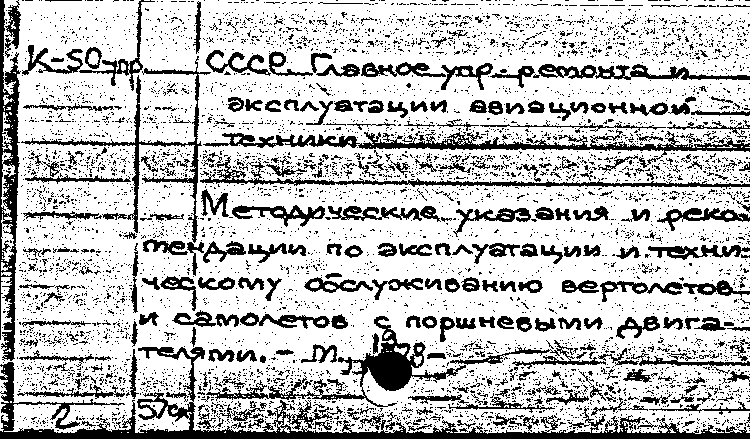 К-50упр. СССР. Главное упр. ремонта и
эксплуатации авиационной
техники
Методические указания и реко-
мендации по эксплуатации и техни-
ческому обслуживанию вертолетов
и самолетов с поршневыми двига-
телями. - М.,
2